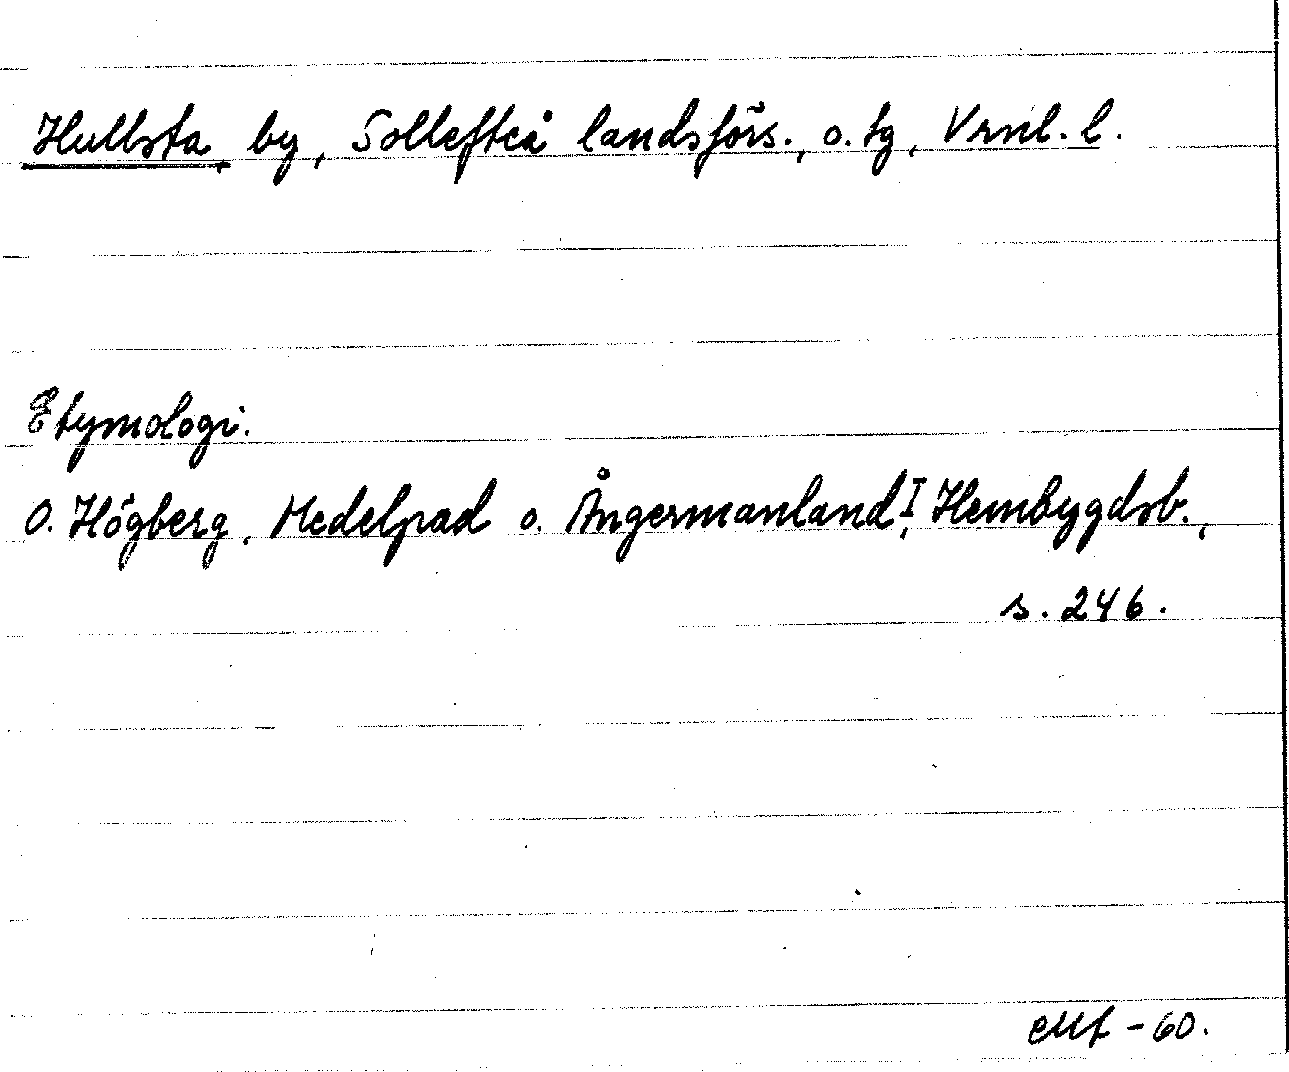 Hullsta, by, Sollefteå landsförs., o. tg, Vrnl. l.
Etymologi.
O. Högberg, Medelpad o. Ångermanland, I Hembygdsb.,
s. 246.
-60.